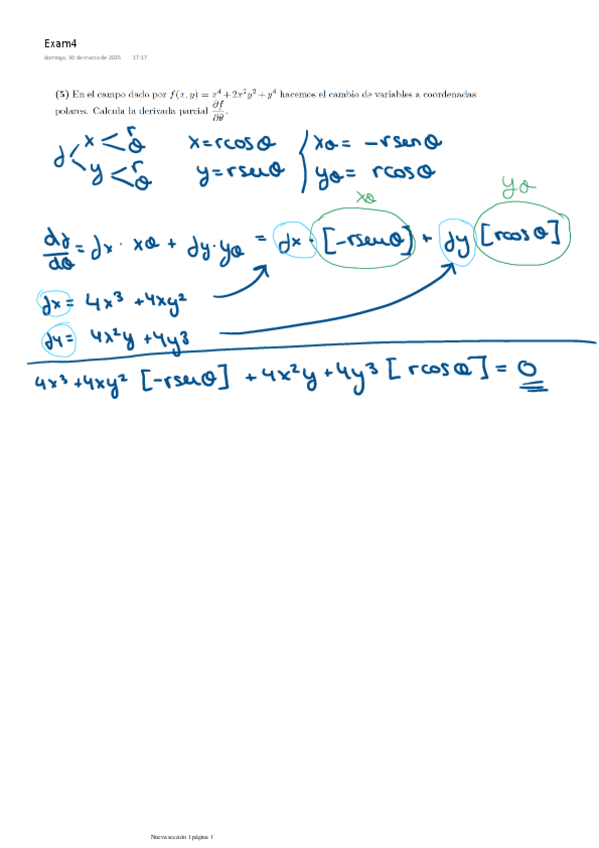 Exam4
domingo, 30 de marzo de 2025 17:17
(5) En el campo dado por f(x, y) = x⁴ + 2x²y² + y⁴ hacemos el cambio de variables a coordenadas
polares. Calcula la derivada parcial ∂f/∂θ.
f < x < r θ
y < r θ
x = rcosθ
y = rsenθ
xθ = -rsenθ
yθ = rcosθ
xθ
yθ
df/dθ = fx · xθ + fy · yθ = fx · [-rsenθ] + fy [rcosθ]
fx = 4x³ + 4xy²
fy = 4x²y + 4y³
4x³ + 4xy² [-rsenθ] + 4x²y + 4y³ [rcosθ] = 0
Nueva sección 1 página 1